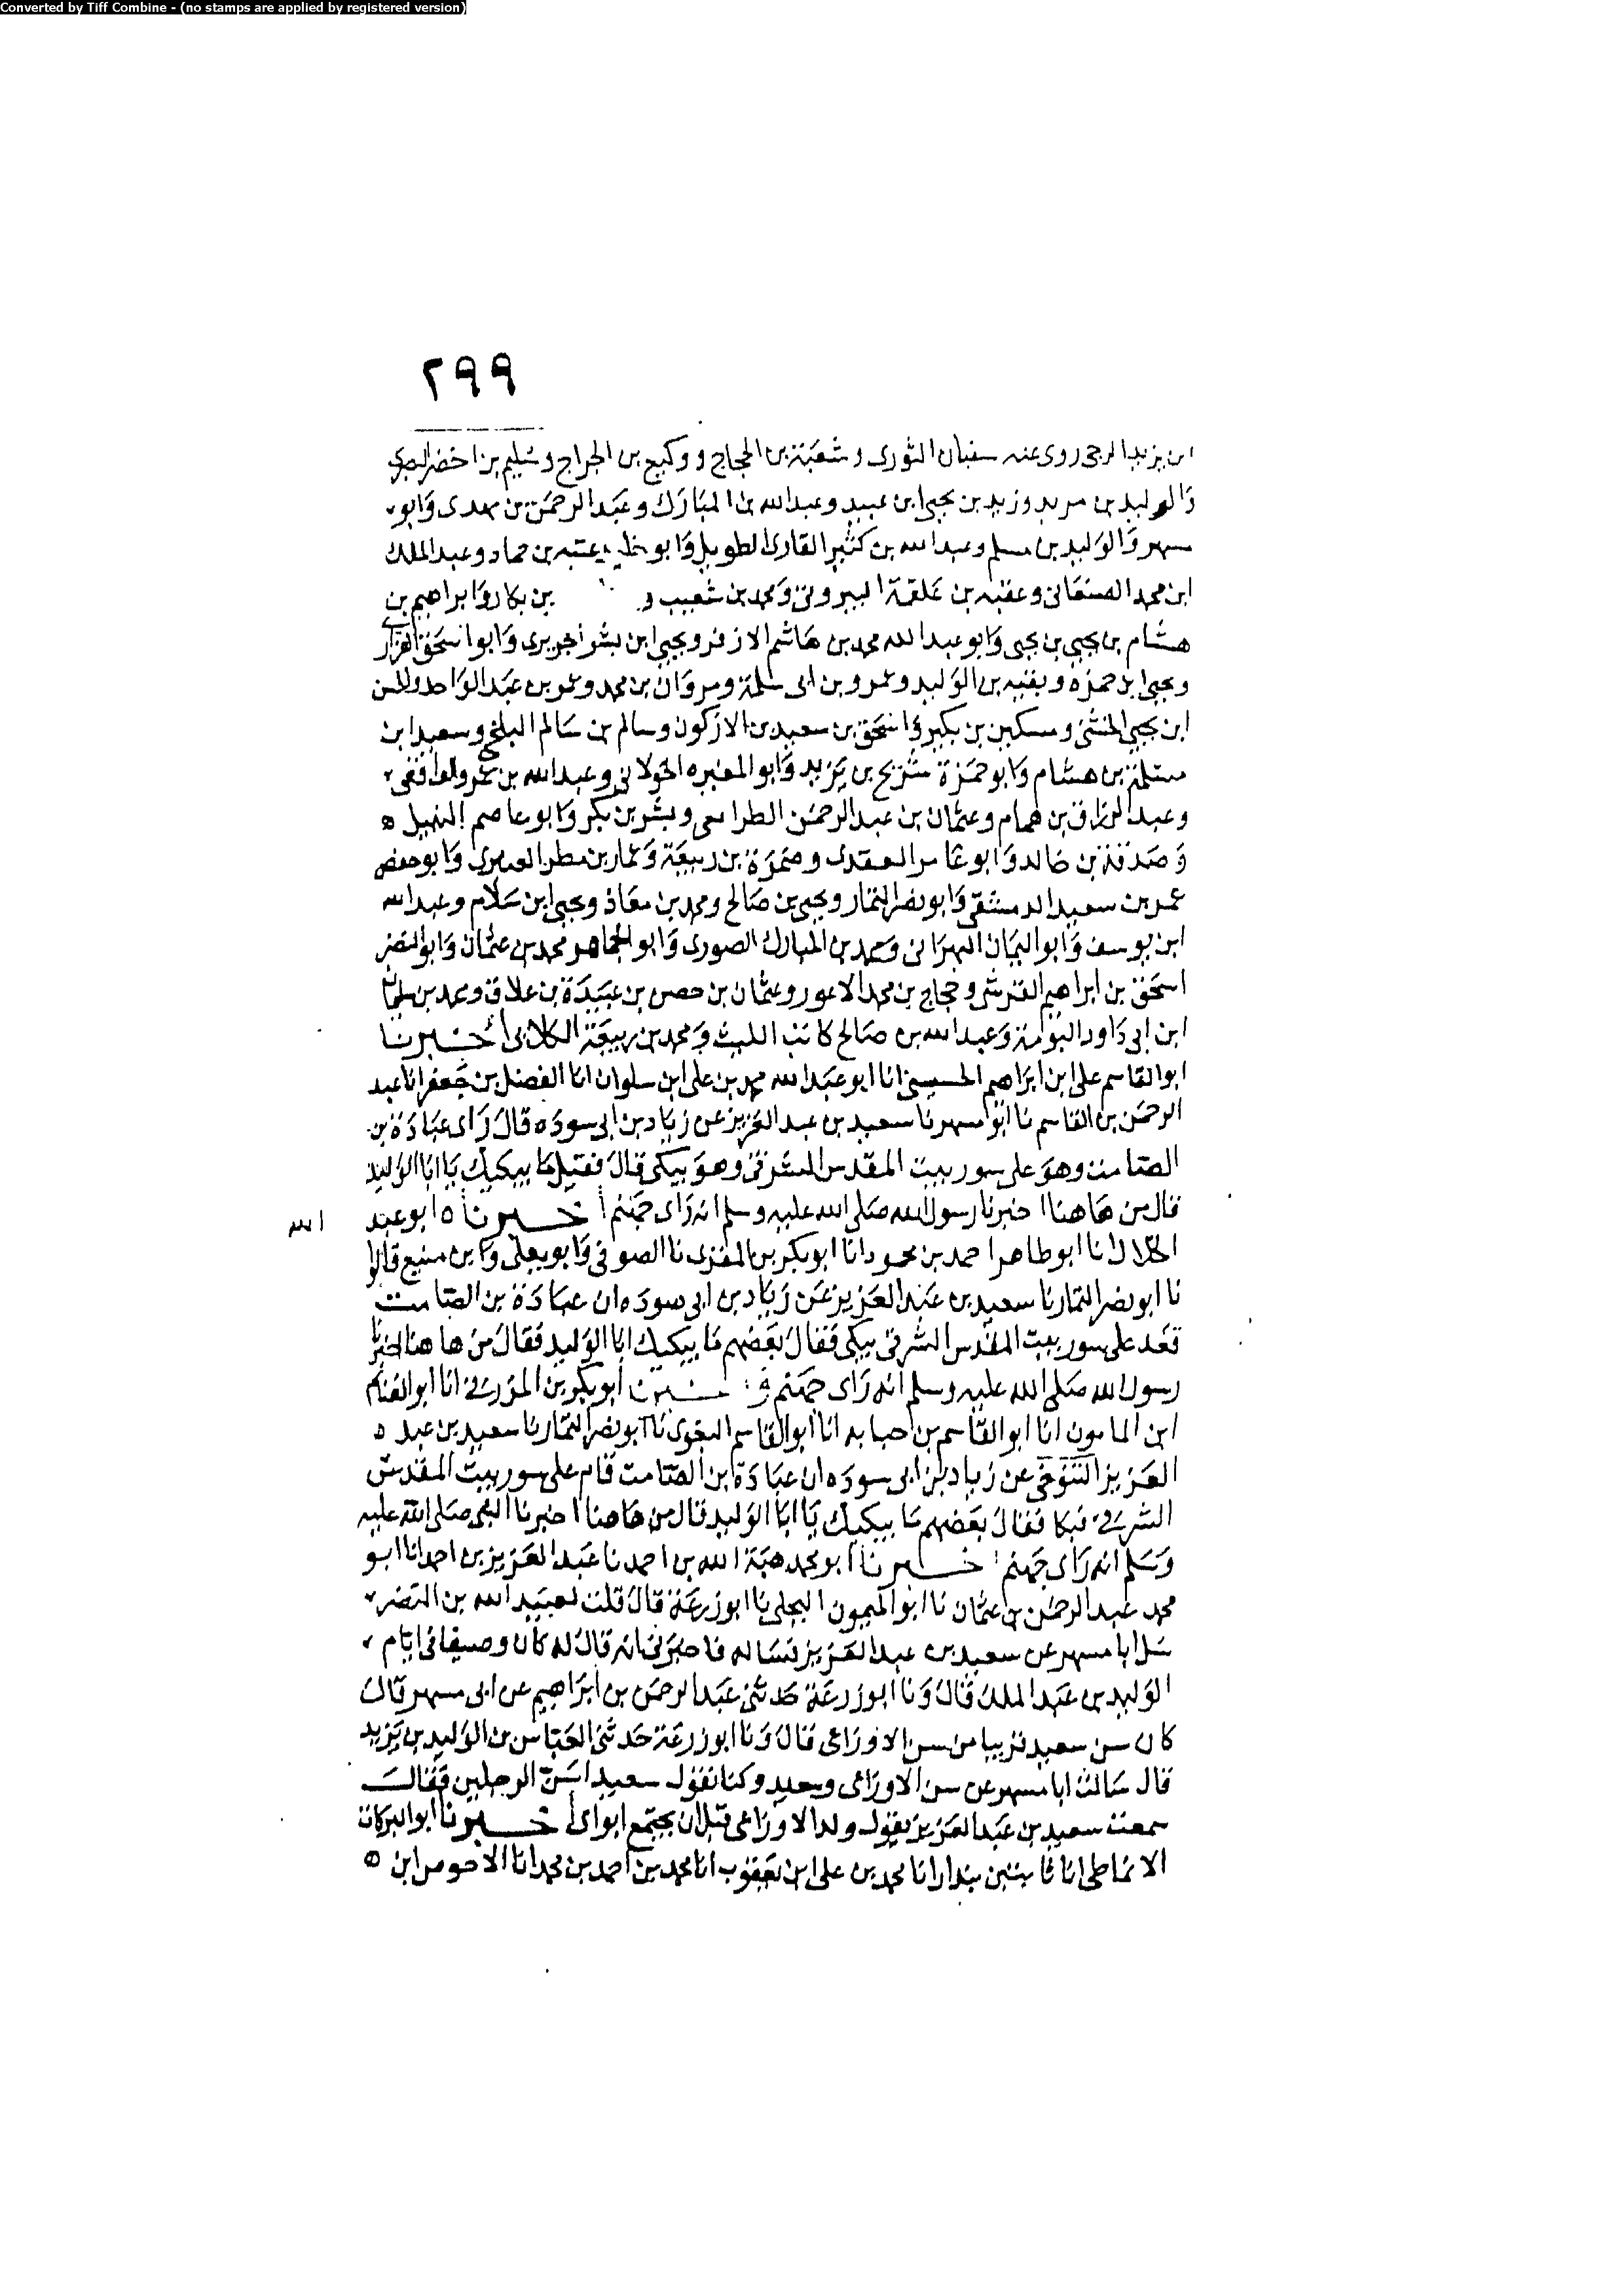 Converted by Tiff Combine - (no stamps are applied by registered version)
٢٩٩
ابن يزيد الرحبي روى عنه سفيان الثورى وشعبة بن الحجاج ووكيع بن الجراح وسليم بن اخضر البصرى
والوليد بن مزيد وزيد بن يحيى ابن عبيد وعبد الله بن المبارك وعبد الرحمن بن مهدى وابو
مسهر والوليد بن مسلم وعبد الله بن كثير القارئ الطويل وابو عتبه بن حماد وعبد الملك
ابن محمد الصنعانى وعقبه بن علقمة البيروتى ومحمد بن شعيب و بن بكار وابراهيم بن
هشام بن يحيى بن يحيى وابو عبد الله محمد بن هاشم ويحيى ابن بشر الحريرى وابو اسحق الفزارى
ويحيى ابن حمزه وبقيه بن الوليد وعمرو بن ابى سلمة ومروان بن محمد وعمر بن عبد الواحد والحسن
ابن يحيى الخشنى ومسكين بن بكير واسحق بن سعيد بن الاركون وسالم بن سالم البلخى وسعيد ابن
مسلمة بن هشام وابو حمزة شريح بن يزيد وابو المغيره الخولانى وعبد الله بن عمرو الواقفى
وعبد الرزاق بن همام وعثمان بن عبد الرحمن الطرايفى وبشر بن بكر وابو عاصم النبيل ه
وصدقة بن خالد وابو عامر العقدى وضمرة بن ربيعة وعمار بن مطر العنبرى وابو حفص
عمر بن سعيد الدمشقى وابو نصر التمار ويحيى بن صالح ومحمد بن معاذ ويحيى ابن سلام وعبد الله
ابن يوسف وابو اليمان البهرانى ومحمد بن المبارك الصورى وابو الجماهر محمد بن عثمان وابو النضر
اسحق بن ابراهيم القرشى وحجاج بن محمد الاعور وعثمان بن حصن بن عبيدة بن علاق ومحمد بن سليمان
ابن ابى داود البومة وعبد الله بن صالح كاتب الليث ومحمد بن ربيعة الكلابى أخبرنا
ابو القاسم على ابن ابراهيم الحسينى انا ابو عبد الله محمد بن على ابن سلوان انا الفضل بن جعفر انا عبد
الرحمن بن القاسم نا ابو مسهر نا سعيد بن عبد العزيز عن زياد بن ابى سوده قال رأى عبادة بن
الصامت وهو على سور بيت المقدس الشرقى وهو يبكى قال فقيل ما يبكيك يا ابا الوليد
قال من هاهنا اخبرنا رسول الله صلى الله عليه وسلم انه رأى جهنم أخبرنا ه ابو عبد
الله
الخلال انا ابو طاهر احمد بن محمود انا ابو بكر بن المقرى نا الصوفى وابو يعلى وابن منيع قالوا
نا ابو نصر التمار نا سعيد بن عبد العزيز عن زياد بن ابى سوده ان عبادة بن الصامت
قعد على سور بيت المقدس الشرقى يبكى فقال بعضهم ما يبكيك ابا الوليد فقال من ها هنا اخبرنا
رسول الله صلى الله عليه وسلم انه رأى جهنم أخبرنا ابو بكر بن المزرفى انا ابو الغنائم
ابن المامون انا ابو القاسم بن حبابه انا ابو القاسم البغوى نا ابو نصر التمار نا سعيد بن عبد ه
العزيز التنوخى عن زياد بن ابى سوده ان عبادة ابن الصامت قام على سور بيت المقدس
الشرقى فبكا فقال بعضهم ما يبكيك يا ابا الوليد قال من هاهنا اخبرنا النبى صلى الله عليه
وسلم انه رأى جهنم أخبرنا ابو محمد هبة الله بن احمد نا عبد العزيز بن احمد انا ابو
محمد عبد الرحمن بن عثمان نا ابو الميمون البجلى نا ابو زرعة قال قلت لعبيد الله بن النضر
سل ابا مسهر عن سعيد بن عبد العزيز فسأله فاخبرنى انه قال له كان وصيفا فى ايام
الوليد بن عبد الملك قال ونا ابو زرعة حدثنى عبد الرحمن بن ابراهيم عن ابى مسهر قال
كان سن سعيد قريبا من سن الاوزاعى قال ونا ابو زرعة حدثنى العباس بن الوليد بن يزيد
قال سالت ابا مسهر عن سن الاوزاعى وسعيد وكنا نقول سعيد اسن الرجلين فقال
سمعت سعيد بن عبد العزيز يقول ولد الاوزاعى قبل ان يجتمع ابواى أخبرنا ابو البركات
الانماطى انا ثابت بن بندار انا محمد بن على ابن يعقوب انا محمد بن احمد بن محمد انا الاحوص ابن ه